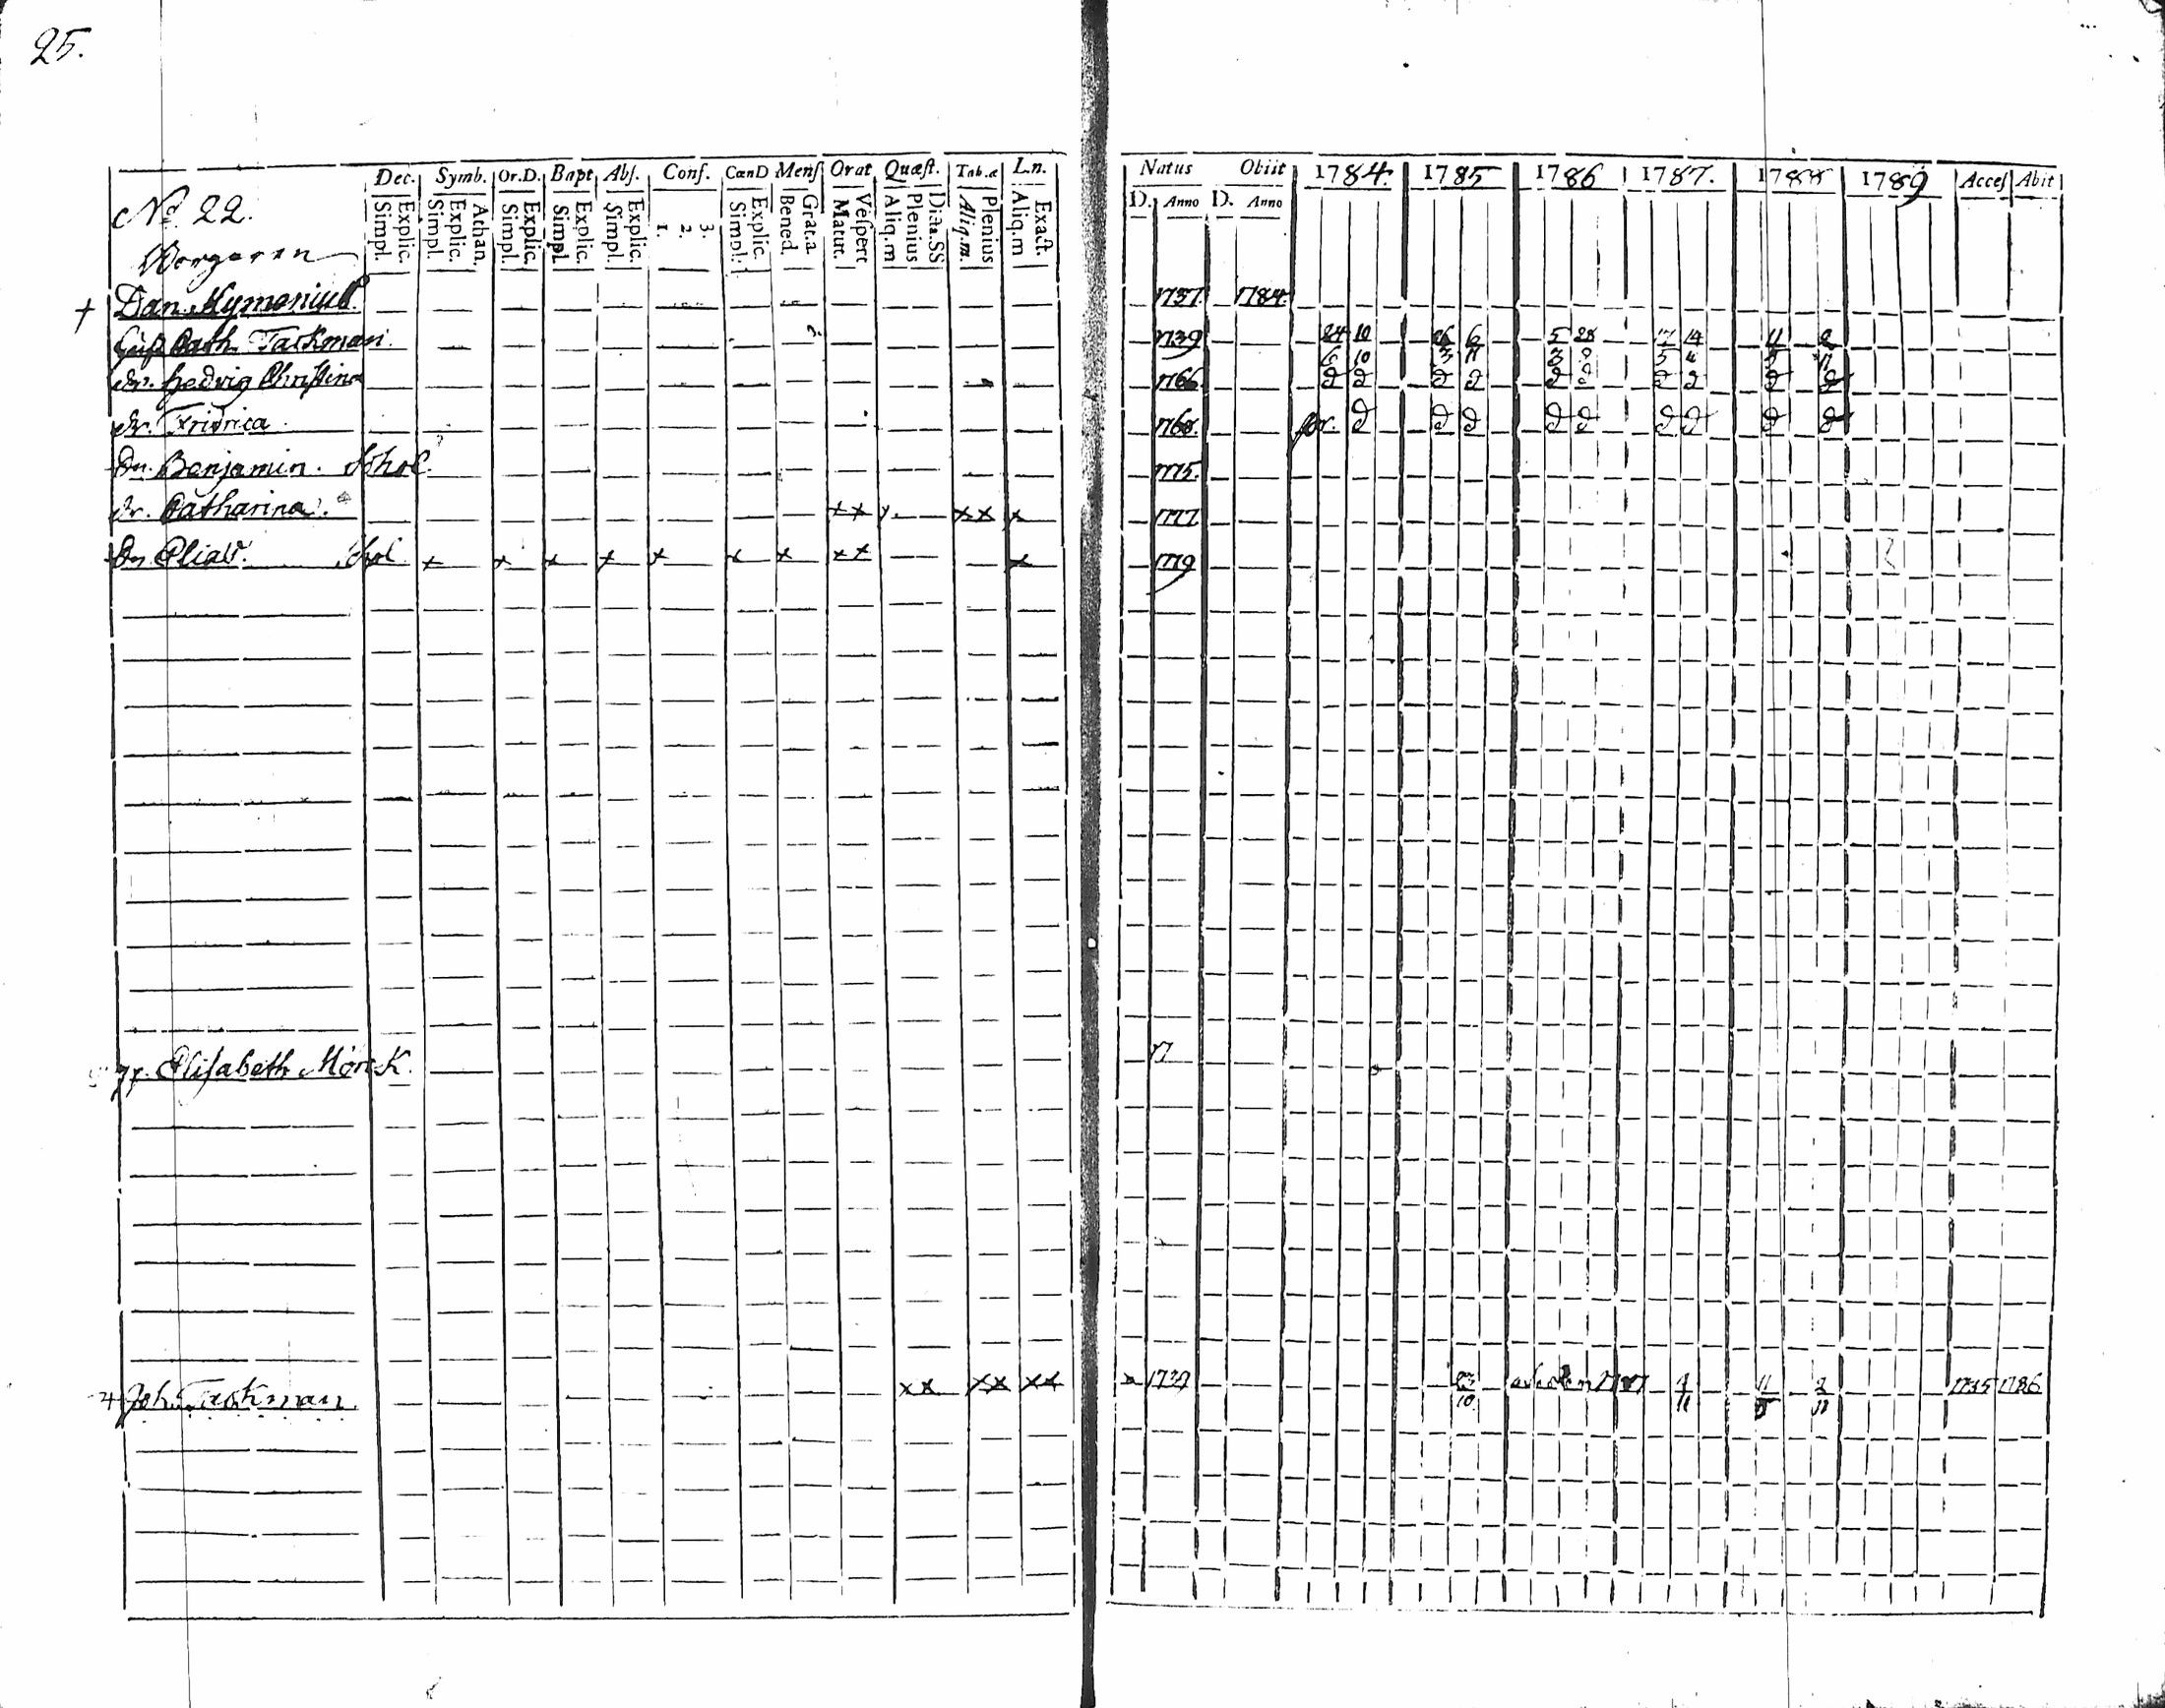 25.
Dec. Symb. Or.D. Bapt. Abs. Conf. CœnD Menſ Orat Quæſt. Tab.æ L.n.
Explic. Simpl. Athan. Explic. Simpl. Explic. Simpl. Explic. Simpl. Explic. Simpl. 3. 2. 1. Explic. Simpl. Grat.a. Bened. Veſpert Matut. Dicta.SS Plenius Aliq.m Plenius Aliq.m. Exact. Aliq.m
Natus Obiit 1784. 1785 1786 1787. 1788 1789 Acceſ Abit
D. Anno D. Anno
No 22.
Borgaren
† Dan. Nymenius. 1737. 1784.
Cath. Tackman. 1739 24 10 26 6 5 28 14 11 2
6 10 3 11 3 5 11
dr. Hedvig Christina 1766
dr. Fridrica. 1768.
Sn. Benjamin. Schol. 1775.
dr. Catharina. xx x xx x 1777
Sn Elias. Schol x x x x x x x xx x 1779
Elisabeth Mörck. 17
Joh. Tackman xx xx xx 1739 10 11 11 2 1785 1786